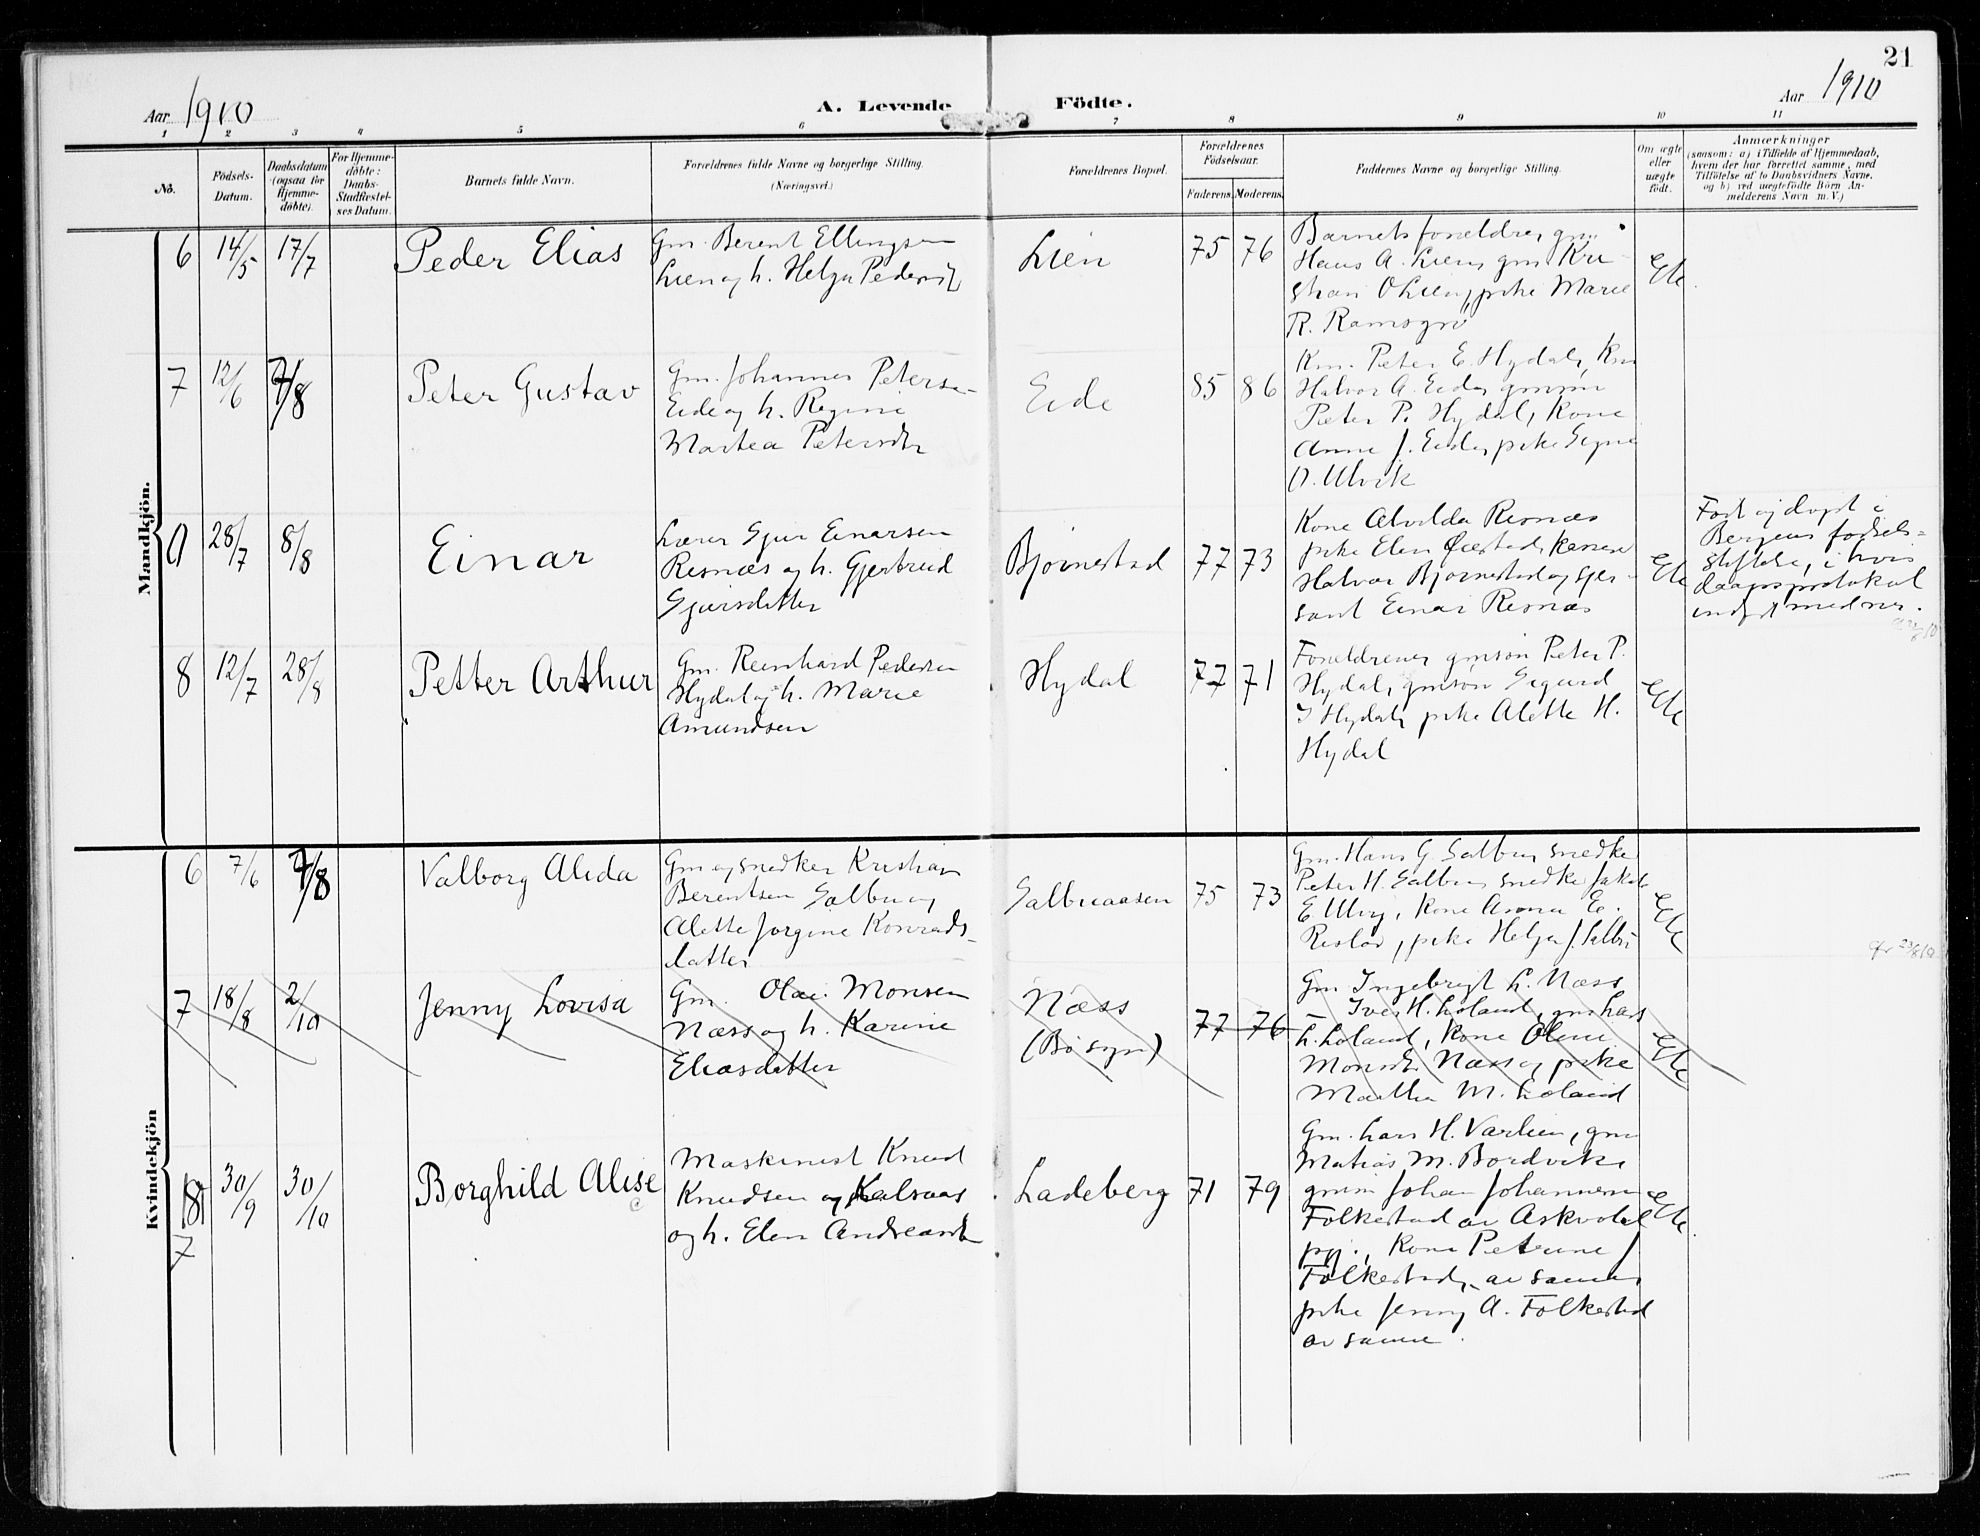 21
Aar 1910
A. Levende Födte.
Aar 1910
1 2 3 4 5 6 7 8 9 10 11
No.
Födsels-Datum.
Daabsdatum (ogsaa for Hjemme-döbte).
For Hjemme-döbte: Daabs-Stadfæstel-ses Datum.
Barnets fulde Navn.
Forældrenes fulde Navne og borgerlige Stilling.
(Næringsvei.)
Forældrenes Bopæl.
Forældrenes Födselsaar.
Faderens. Moderens.
Faddernes Navne og borgerlige Stilling.
Om ægte eller uægte födt.
Anmærkninger
(saasom: a) i Tilfælde af Hjemmedaab, hvem der har forrettet samme, med Tilföielse af to Daabsvidners Navne, og b) ved uægtefödte Börn Anmelderens Navn m. V.)
Mandkjön.
6 14/5 17/7 Peder Elias
Gm. Berent Ellingsen
Lien og h. Helga Pedersd
Lien 75 76
Barnets foreldre, gm.
Hans A. Lien, gm. Kri-
stian O Lien, pike Marie
R. Ramsgrø
Ekte
7 12/6 7/8 Peter Gustav
Gm. Johannes Peterse-
Eide og h. Regine
Martea Petersdtr
Eide 85 86
Km. Peter E. Hydal, Km
Halvor A. Eide, gmsøn
Peter P. Hydal, Kone
Anne J. Eide, pike Signe
O. Ulvik
0 28/7 8/8 Einar
Lærer Sjur Einarsen
Resnæs og h. Gjertrud
Sjursdatter
Bjørnestad 77 73
Kone Alvilda Resnæs
pike Elen Øiestad, kirkesa
Halvor Bjørnestad og sjer-
sant Einar Resnæs
Ekte
Født og døpt i
Bergens fødsels=
stiftelse, i hvis
daapsprotokol
indført med nr.
8 12/7 28/8 Petter Arthur
Gm. Reinhard Pedersen
Hydal og h. Marie
Amundsen
Hydal 77 71
Foreldrene, gmsøn Peter P.
Hydal, gmsøn Sigurd
I Hydal, pike Alette H.
Hydal
Ekte
Kvindekjön
6 7/6 7/8 Valborg Alida
Gm og snedker Kristian
Berentsen Salbu og
Alette Jørgine Konrads-
datter
Salbuaasen 75 73
Gm. Hans G. Salbu, snedke
Peter H. Salbu, snedke Jakob
E Ulvy, Kone Anna E.
Risløv, pike Helga J. Salbu
Ekte
7 18/8 2/10 Jenny Lovisa
Gm. Olai Monsen
Næss og h. Karine
Eliasdatter
Næss
(Bø sogn)
77 76
Gm Ingebrigt L. Næss
Iver H. Loland, gm Lars
L. Loland, Kone Oline
Monsdtr Næss og pike
Martha M. Loland
Ekte
8 7 30/9 30/10 Borghild Alise
Maskinist Knud
Knudsen og Kalsaas
og h. Elen Andreasdtr
Ladeberg 71 79
Gm. Lars H. Varlien, gm
Matias M. Bordvik,
gmsøn Johan Johannesen
Folkestad av Askvold
pgj., Kone Petrine J
Folkestad, av samme,
pike Jenny A. Folkestad
av samme.
Ekte